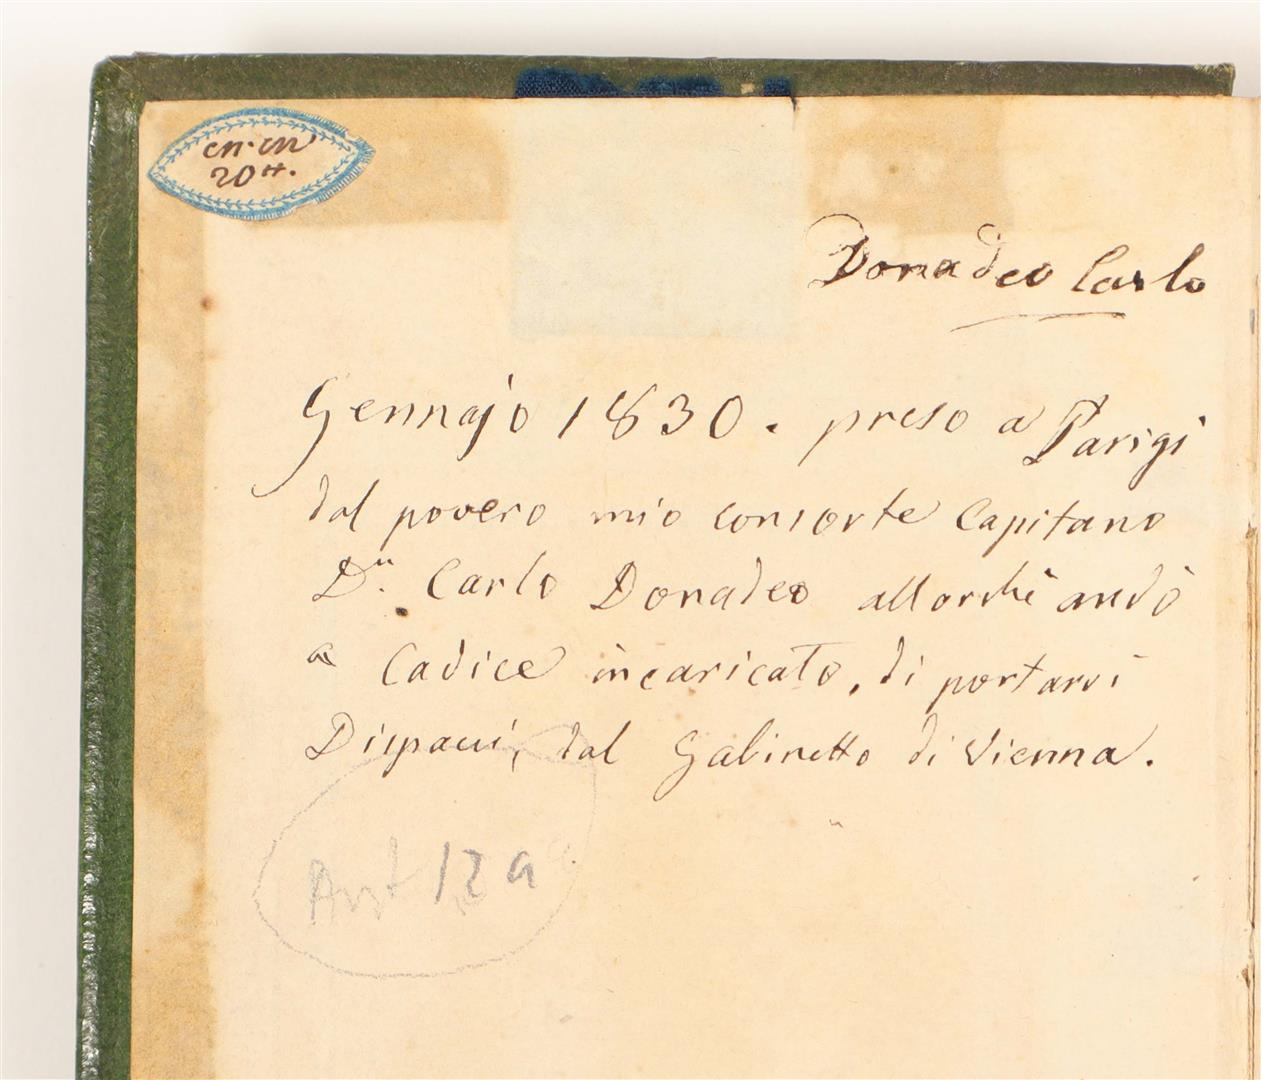 cn. cn
20tt.
Donadeo Carlo
Gennajo 1830. preso a Parigi
dal povero mio consorte Capitano
Dn. Carlo Donadeo allorchè andò
a Cadice incaricato, di portarvi
Dispacci, dal Gabinetto di Vienna.
12a